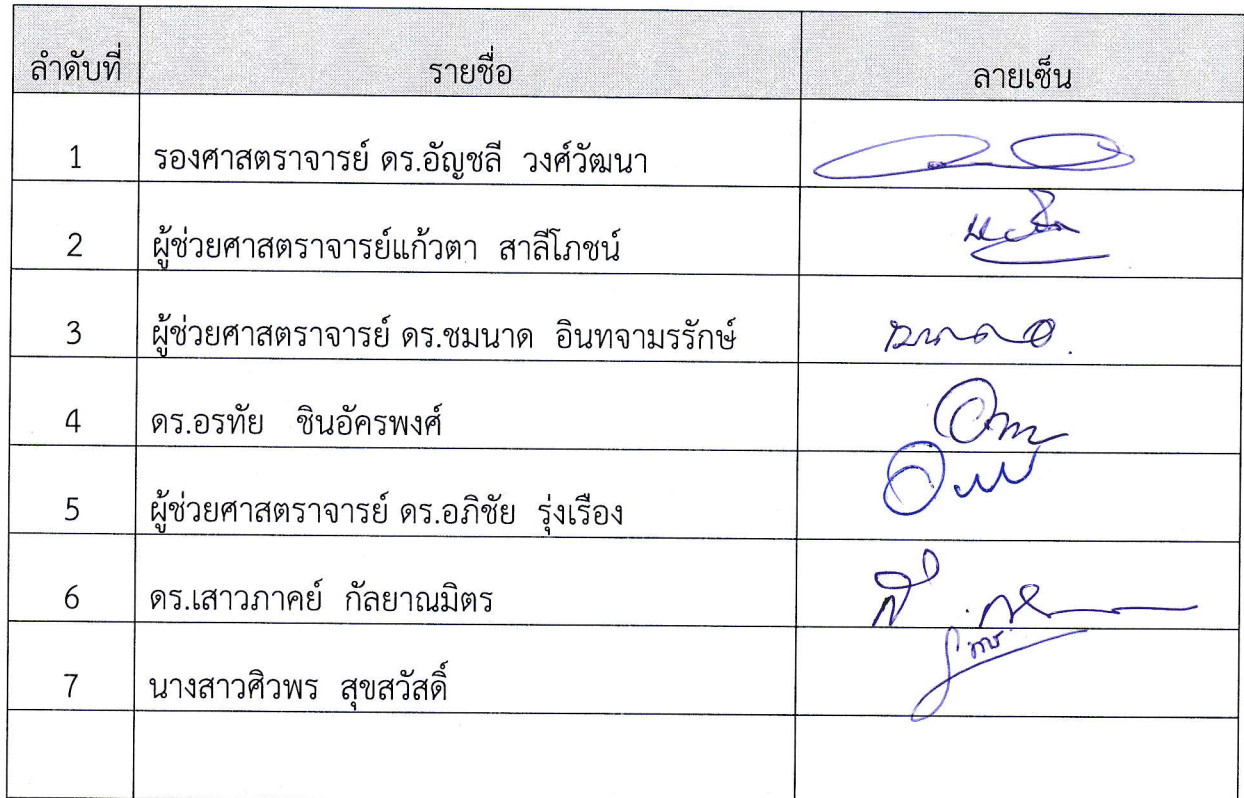 ลำดับที่ รายชื่อ ลายเซ็น
1 รองศาสตราจารย์ ดร.อัญชลี วงศ์วัฒนา
2 ผู้ช่วยศาสตราจารย์แก้วตา สาลีโภชน์
3 ผู้ช่วยศาสตราจารย์ ดร.ชมนาด อินทจามรรักษ์
4 ดร.อรทัย ชินอัครพงศ์
5 ผู้ช่วยศาสตราจารย์ ดร.อภิชัย รุ่งเรือง
6 ดร.เสาวภาคย์ กัลยาณมิตร
7 นางสาวศิวพร สุขสวัสดิ์